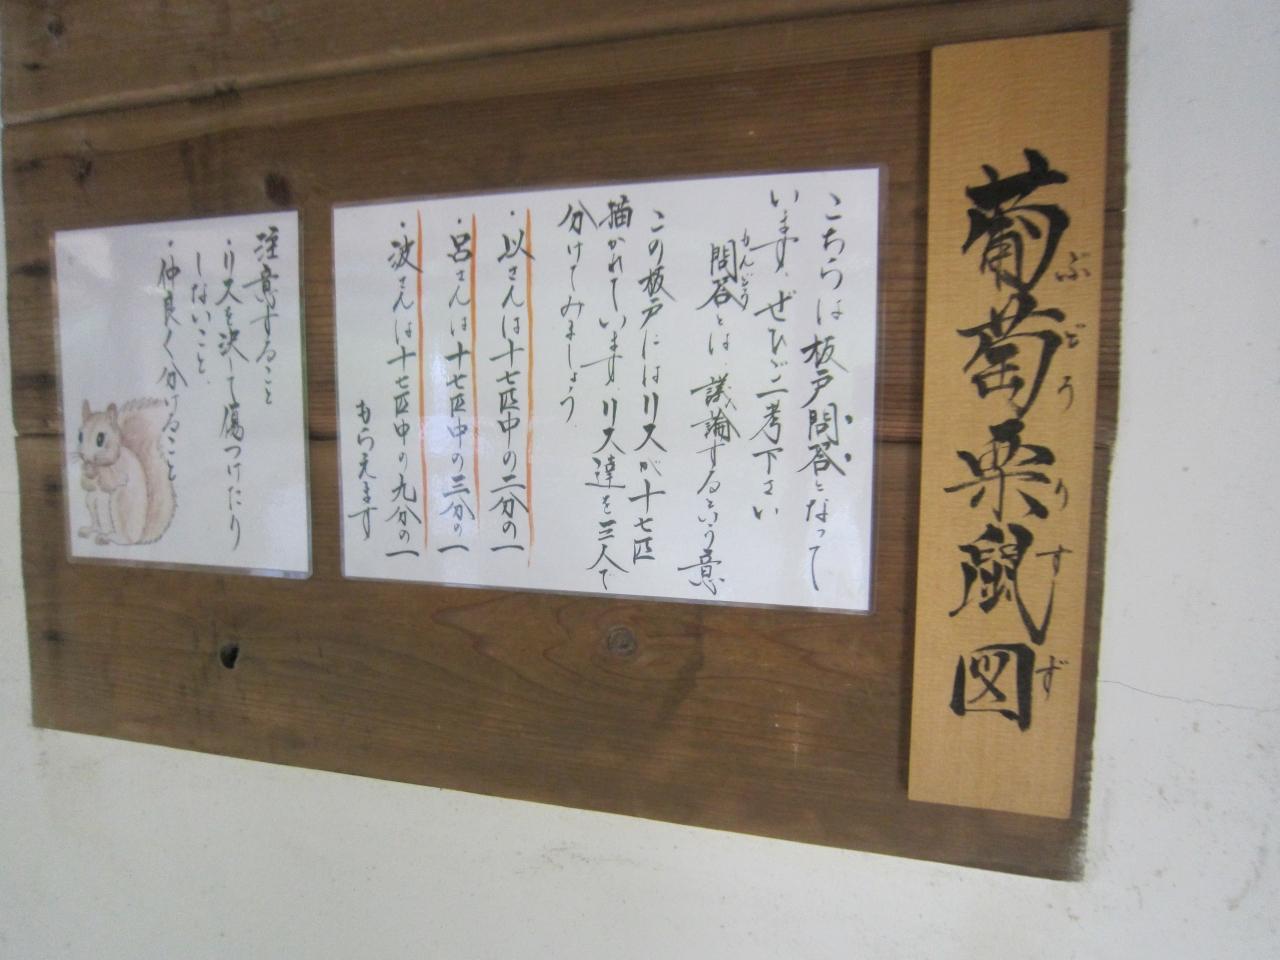 葡萄栗鼠図
ぶどうりすず
こちらは板戸問答となって
います、ぜひご一考下さい
問答とは、議論するという意
もんどう
この板戸にはリスが十七匹
描かれています。リス達を三人で
分けてみましょう
・以さんは十七匹中の二分の一
・呂さんは十七匹中の三分の一
・波さんは十七匹中の九分の一
もらえます
注意すること
・リスを決して傷つけたり
しないこと。
・仲良く分けること